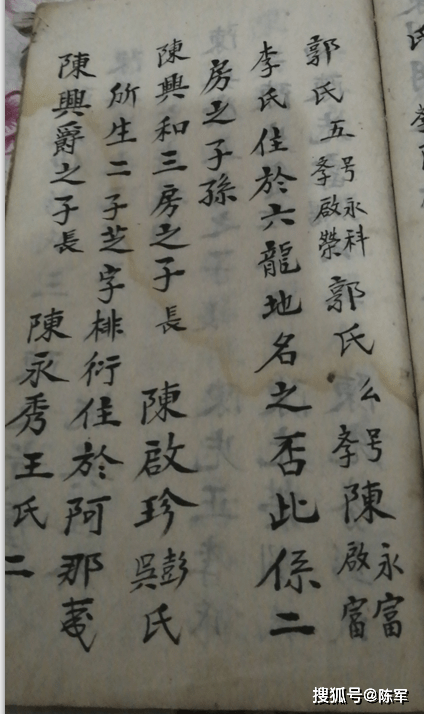 郭氏五号永科孝啟榮郭氏么号永富孝陳啟富
李氏住於六龍地名之否此係二
房之子孫
陳興和三房之子長 陳啟珍彭吳氏
所生二子芝字排衍住於阿那
陳興爵之子長 陳永秀王氏二
搜狐号@陈军